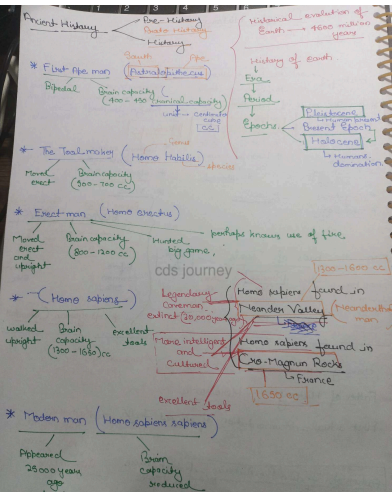 Ancient History
Pre-History
Proto History
History
Historical evolution of
Earth → 4600 million
years
History of Earth
Era
Period
Epochs
Pleistocene
Human present
Present Epoch
Holocene
Humans
domination
South
Ape
* First Ape man (Australopithecus)
Bipedal
Brain capacity
(400-450 cranial capacity)
unit → centimeter
cube
CC
* The Toolmakey (Homo Habilis)
species
Moved
erect
Brain capacity
(500-700 cc)
* Erect man (Homo erectus)
Moved
erect
and
upright
Brain capacity
(800-1200 cc)
Hunted
big game,
perhaps knows use of fire
cds journey
* (Homo sapiens)
walked
upright
Brain
capacity
(1300-1650)cc
excellent
tools
1300-1600 cc
Legendary
caveman,
extinct
Homo sapiens found in
Neander Valley
Neanderthal
man
More intelligent
and
cultured
Homo sapiens found in
Cro-Magnun Rocks
France
1650 cc
excellent tools
* Modern man (Homo sapiens sapiens)
Appeared
25000 years
ago
Brain
capacity
reduced